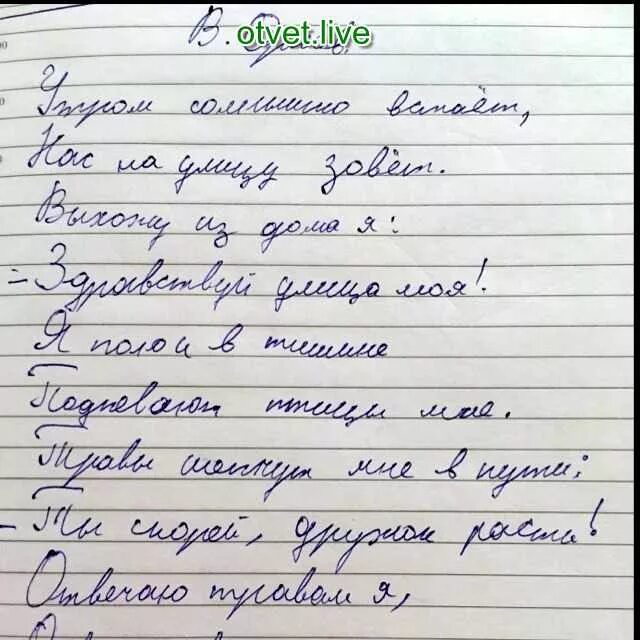 otvet.live
В.
Утром солнышко встаёт,
Нас на улицу зовёт.
Выхожу из дома я:
= Здравствуй улица моя!
Я пою и в тишине
Подпевают птицы мне.
Травы шепчут мне в пути:
- Ты скорей, дружок расти!
Отвечаю травам я,